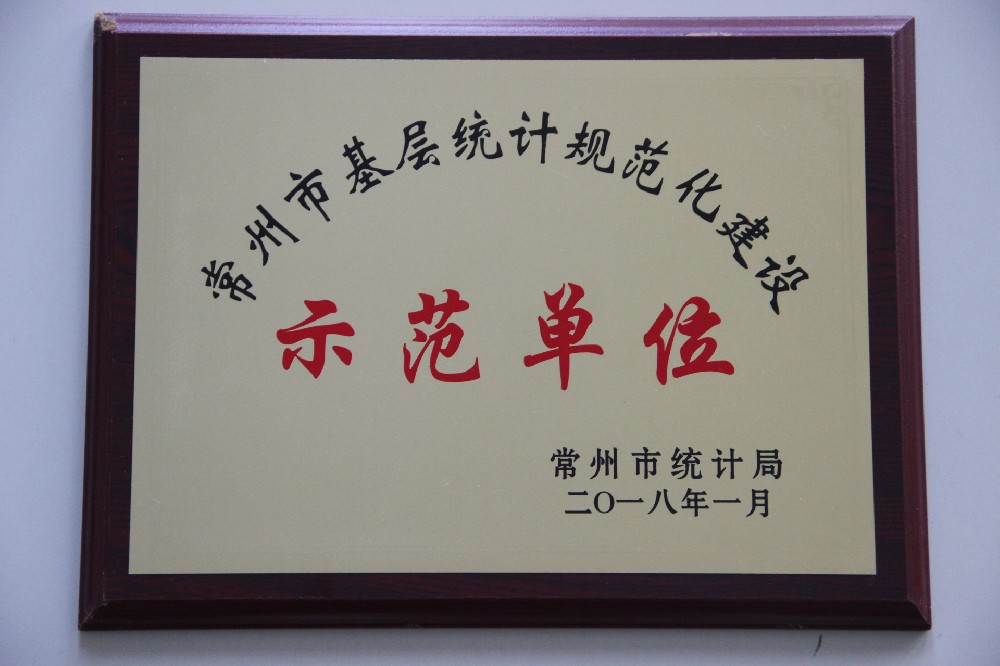 常州市基层统计规范化建设
示范单位
常州市统计局
二〇一八年一月